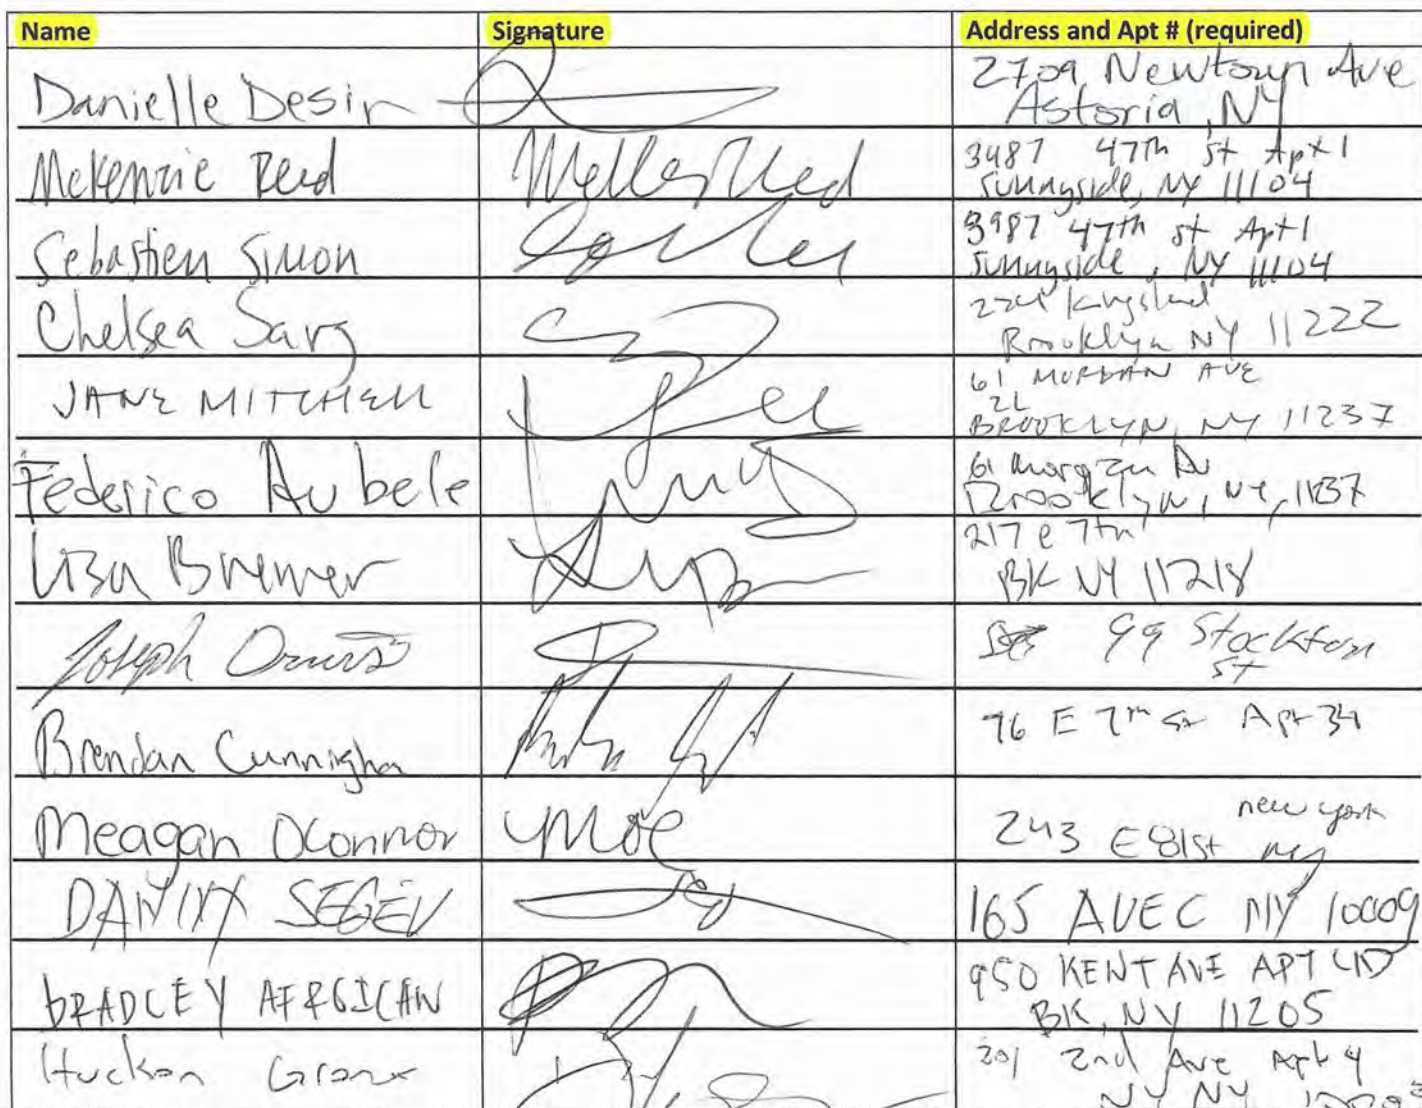 Name Signature Address and Apt # (required)
Danielle Desir 2709 Newtown Ave
Astoria, NY
McKenzie Reed 3487 47th St Apt 1
Sunnyside, NY 11104
Sebastien Simon 3987 47th St Apt 1
Sunnyside, NY 11104
Chelsea Kingsland
Brooklyn NY 11222
JANE MITCHELL 61 MORGAN AVE
2L
BROOKLYN, NY 11237
Federico Aubele 61 Morgan Av
Brooklyn, NY, 11237
Liza Bremer 217 e 7th
BK NY 11218
Joseph 99 Stockton
St
Brendan Cunningham 96 E 7th St Apt 34
Meagan OConnor MOC 243 E 81st new york
ny
DANNY SEGEV 165 AVE C NY 10009
BRADLEY 950 KENT AVE APT
BK, NY 11205
Hudson 201 2nd Ave Apt 4
NY NY